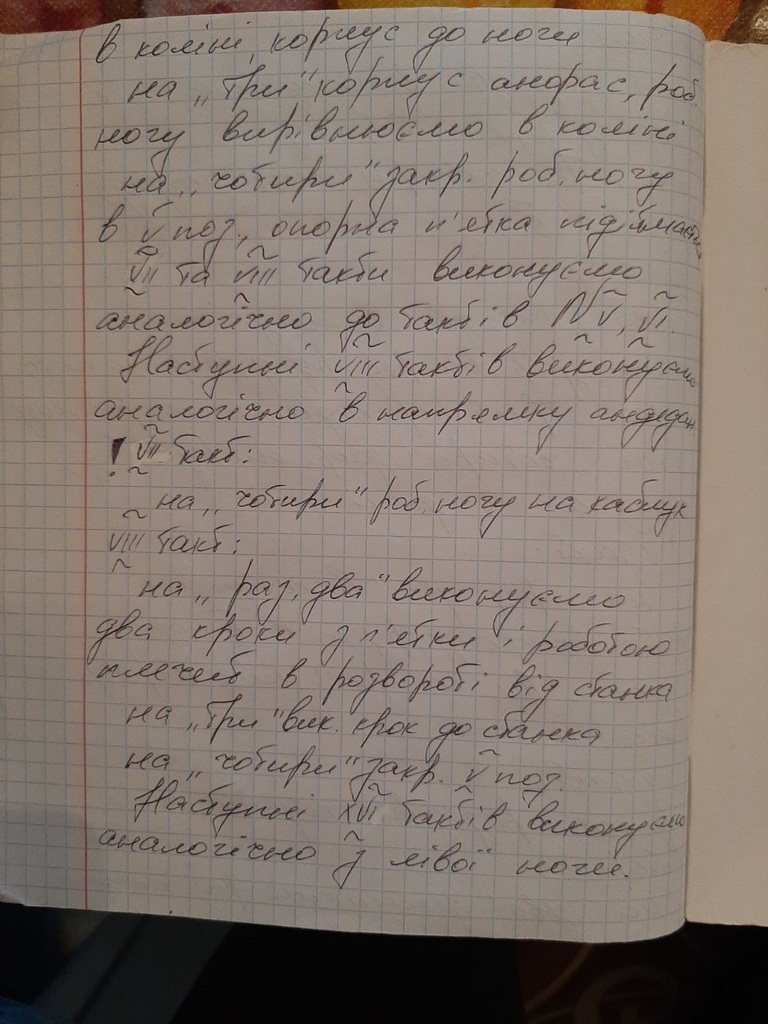 в коліні, корпус до ноги
на „три" корпус анфас, роб.
ногу вирівнюємо в коліні
на „чотири" закр. роб. ногу
в V поз., опорна п'ятка підіймається
VII та VIII такти виконуємо
аналогічно до тактів V, VI.
Наступні VIII тактів виконуємо
аналогічно в напрямку андедан
! VII такт:
на „чотири" роб. ногу на каблук
VIII такт:
на „раз, два" виконуємо
два кроки з п'ятки і роботою
плечей в розвороті від станка
на „три" вик. крок до станка
на „чотири" закр. V поз.
Наступні XVI тактів виконуємо
аналогічно з лівої ноги.